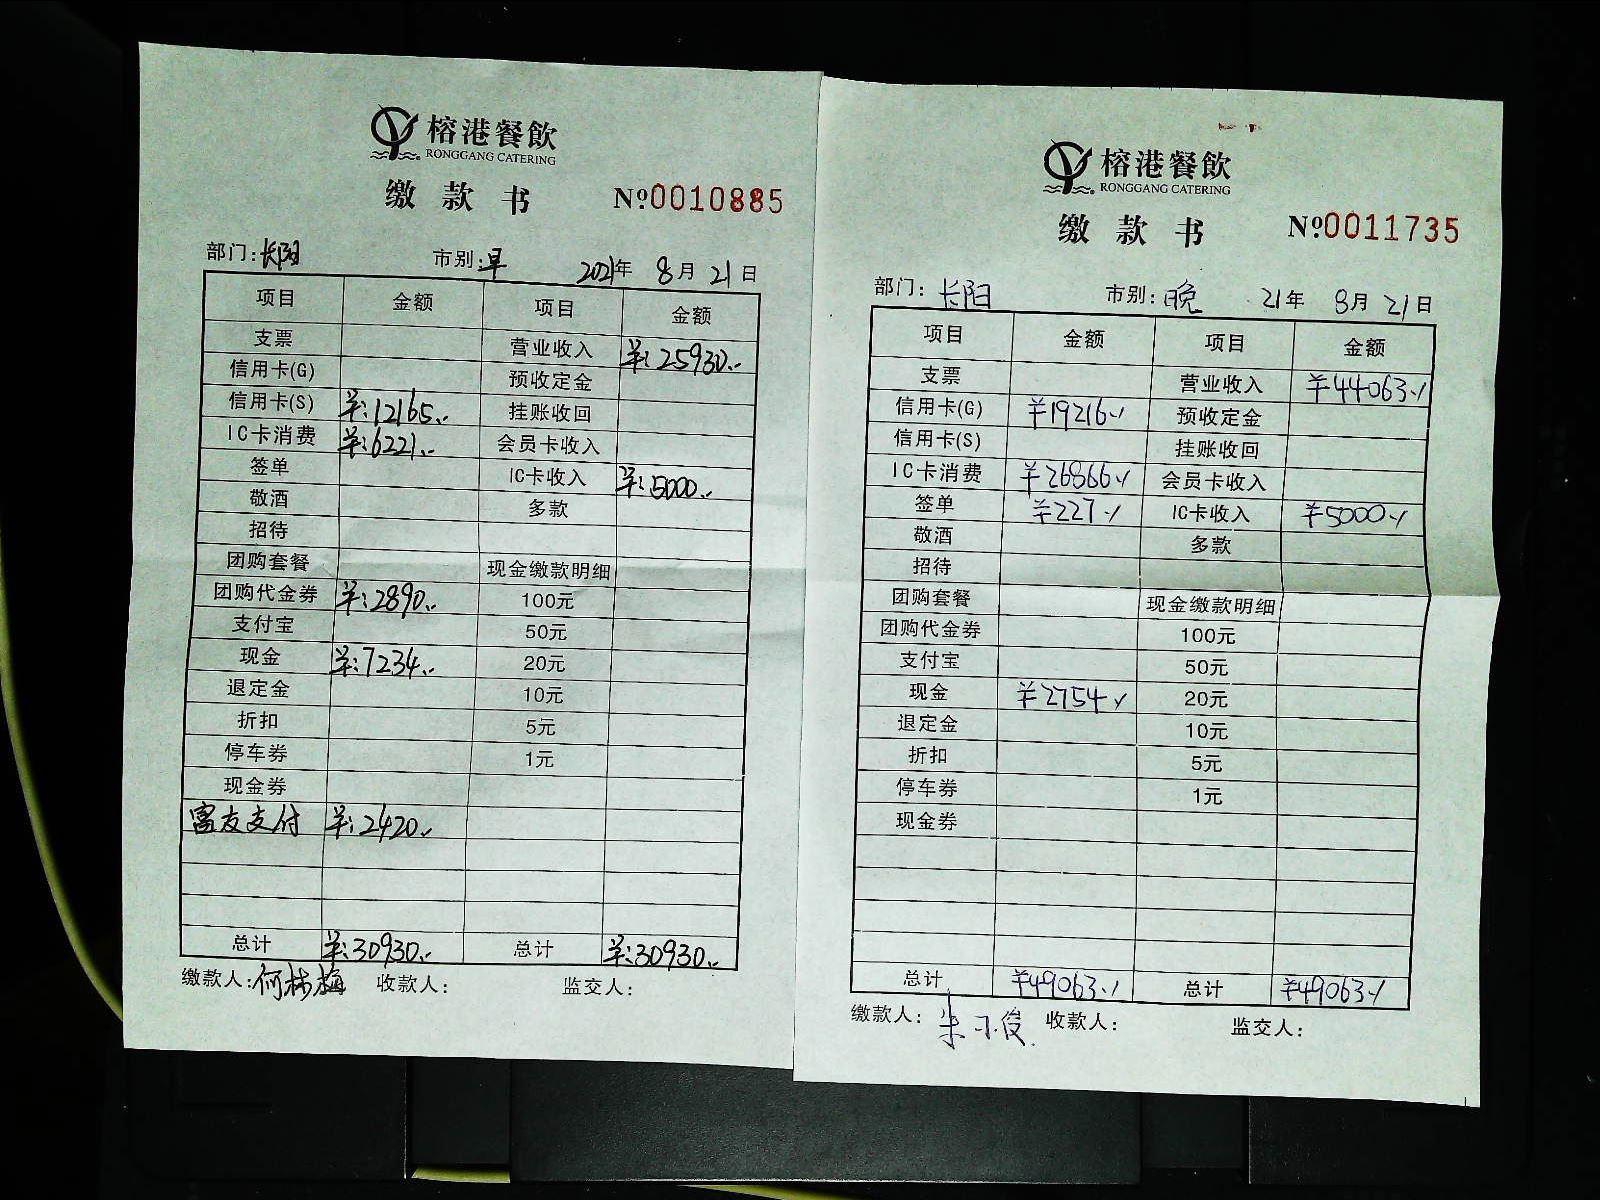 榕港餐飲
RONGGANG CATERING
缴款书 №0010885
部门:长阳 市别:早 2021年 8月 21日
项目 金额 项目 金额
支票 营业收入 ¥:25930.-
信用卡(G) 预收定金
信用卡(S) ¥:12165.- 挂账收回
IC卡消费 ¥:6221.- 会员卡收入
签单 IC卡收入 ¥:5000.-
敬酒 多款
招待
团购套餐 现金缴款明细
团购代金券 ¥:2890.- 100元
支付宝 50元
现金 ¥:7234.- 20元
退定金 10元
折扣 5元
停车券 1元
现金券
富友支付 ¥:2420.-
总计 ¥:30930.- 总计 ¥:30930.-
缴款人:何林梅 收款人: 监交人:
榕港餐飲
RONGGANG CATERING
缴款书 №0011735
部门:长阳 市别:晚 21年 8月 21日
项目 金额 项目 金额
支票 营业收入 ¥44063.-
信用卡(G) ¥19216.- 预收定金
信用卡(S) 挂账收回
IC卡消费 ¥26866.- 会员卡收入
签单 ¥227.- IC卡收入 ¥5000.-
敬酒 多款
招待
团购套餐 现金缴款明细
团购代金券 100元
支付宝 50元
现金 ¥2754.- 20元
退定金 10元
折扣 5元
停车券 1元
现金券
总计 ¥49063.- 总计 ¥49063.-
缴款人: 收款人: 监交人: